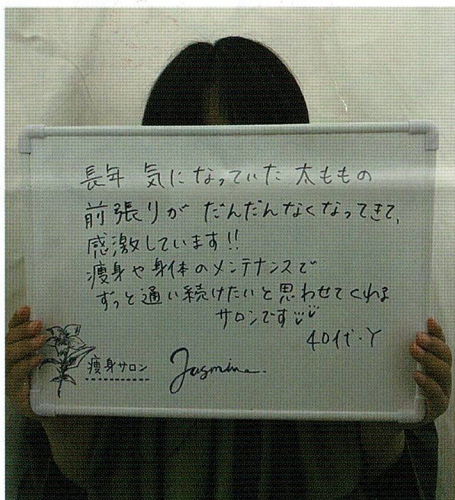 長年 気になっていた 太ももの
前張りが だんだんなくなってきて、
感激しています!!
痩身や身体のメンテナンスで
ずっと通い続けたいと思わせてくれる
サロンです
40代・Y
痩身サロン Jasmine